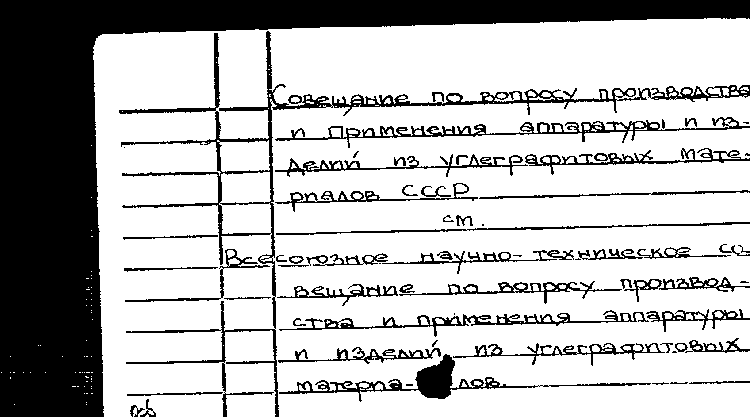 Совещание по вопросу производства
и применения аппаратуры и из-
делий из углеграфитовых мате-
риалов СССР
см.
Всесоюзное научно-техническое со-
вещание по вопросу производ-
ства и применения аппаратуры
и изделий из углеграфитовых
материа-лов.